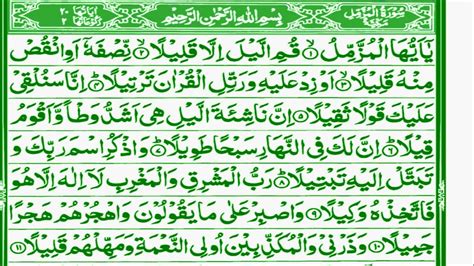 سُوْرَةُ الْمُزَّمِّلِ مَكِّيَّةٌ بِسْمِ اللّٰهِ الرَّحْمٰنِ الرَّحِيْمِ اٰيَاتُهَا ٢٠ رُكُوْعَاتُهَا ٢
يٰۤاَيُّهَا الْمُزَّمِّلُ ۙ﴿١﴾ قُمِ الَّيْلَ اِلَّا قَلِيْلًا ۙ﴿٢﴾ نِّصْفَهٗۤ اَوِ انْقُصْ
مِنْهُ قَلِيْلًا ۙ﴿٣﴾ اَوْ زِدْ عَلَيْهِ وَرَتِّلِ الْقُرْاٰنَ تَرْتِيْلًا ؕ﴿٤﴾ اِنَّا سَنُلْقِيْ
عَلَيْكَ قَوْلًا ثَقِيْلًا ﴿٥﴾ اِنَّ نَاشِئَةَ الَّيْلِ هِيَ اَشَدُّ وَطْاً وَّاَقْوَمُ
قِيْلًا ؕ﴿٦﴾ اِنَّ لَكَ فِي النَّهَارِ سَبْحًا طَوِيْلًا ؕ﴿٧﴾ وَاذْكُرِ اسْمَ رَبِّكَ وَ
تَبَتَّلْ اِلَيْهِ تَبْتِيْلًا ؕ﴿٨﴾ رَبُّ الْمَشْرِقِ وَالْمَغْرِبِ لَاۤ اِلٰهَ اِلَّا هُوَ
فَاتَّخِذْهُ وَكِيْلًا ﴿٩﴾ وَاصْبِرْ عَلٰى مَا يَقُوْلُوْنَ وَاهْجُرْهُمْ هَجْرًا
جَمِيْلًا ﴿١٠﴾ وَذَرْنِيْ وَالْمُكَذِّبِيْنَ اُولِي النَّعْمَةِ وَمَهِّلْهُمْ قَلِيْلًا ﴿١١﴾